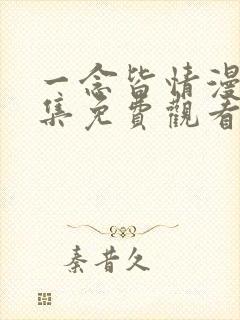 一念皆情漫
集免費觀看
秦昔久